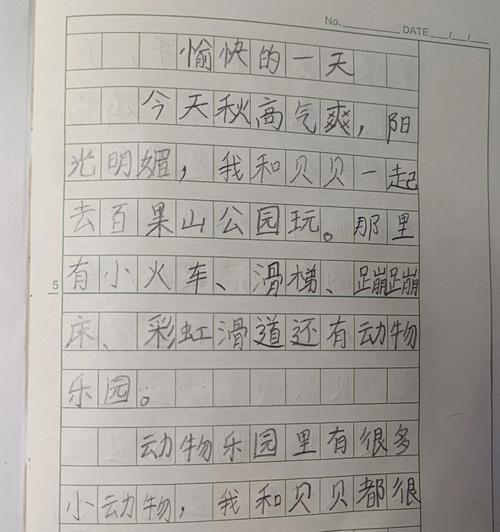 No.
DATE / /
愉快的一天
今天秋高气爽，阳
光明媚，我和贝贝一起
去百果山公园玩。那里
有小火车、滑梯、蹦蹦
5
床、彩虹滑道还有动物
乐园。
动物乐园里有很多
小动物，我和贝贝都很